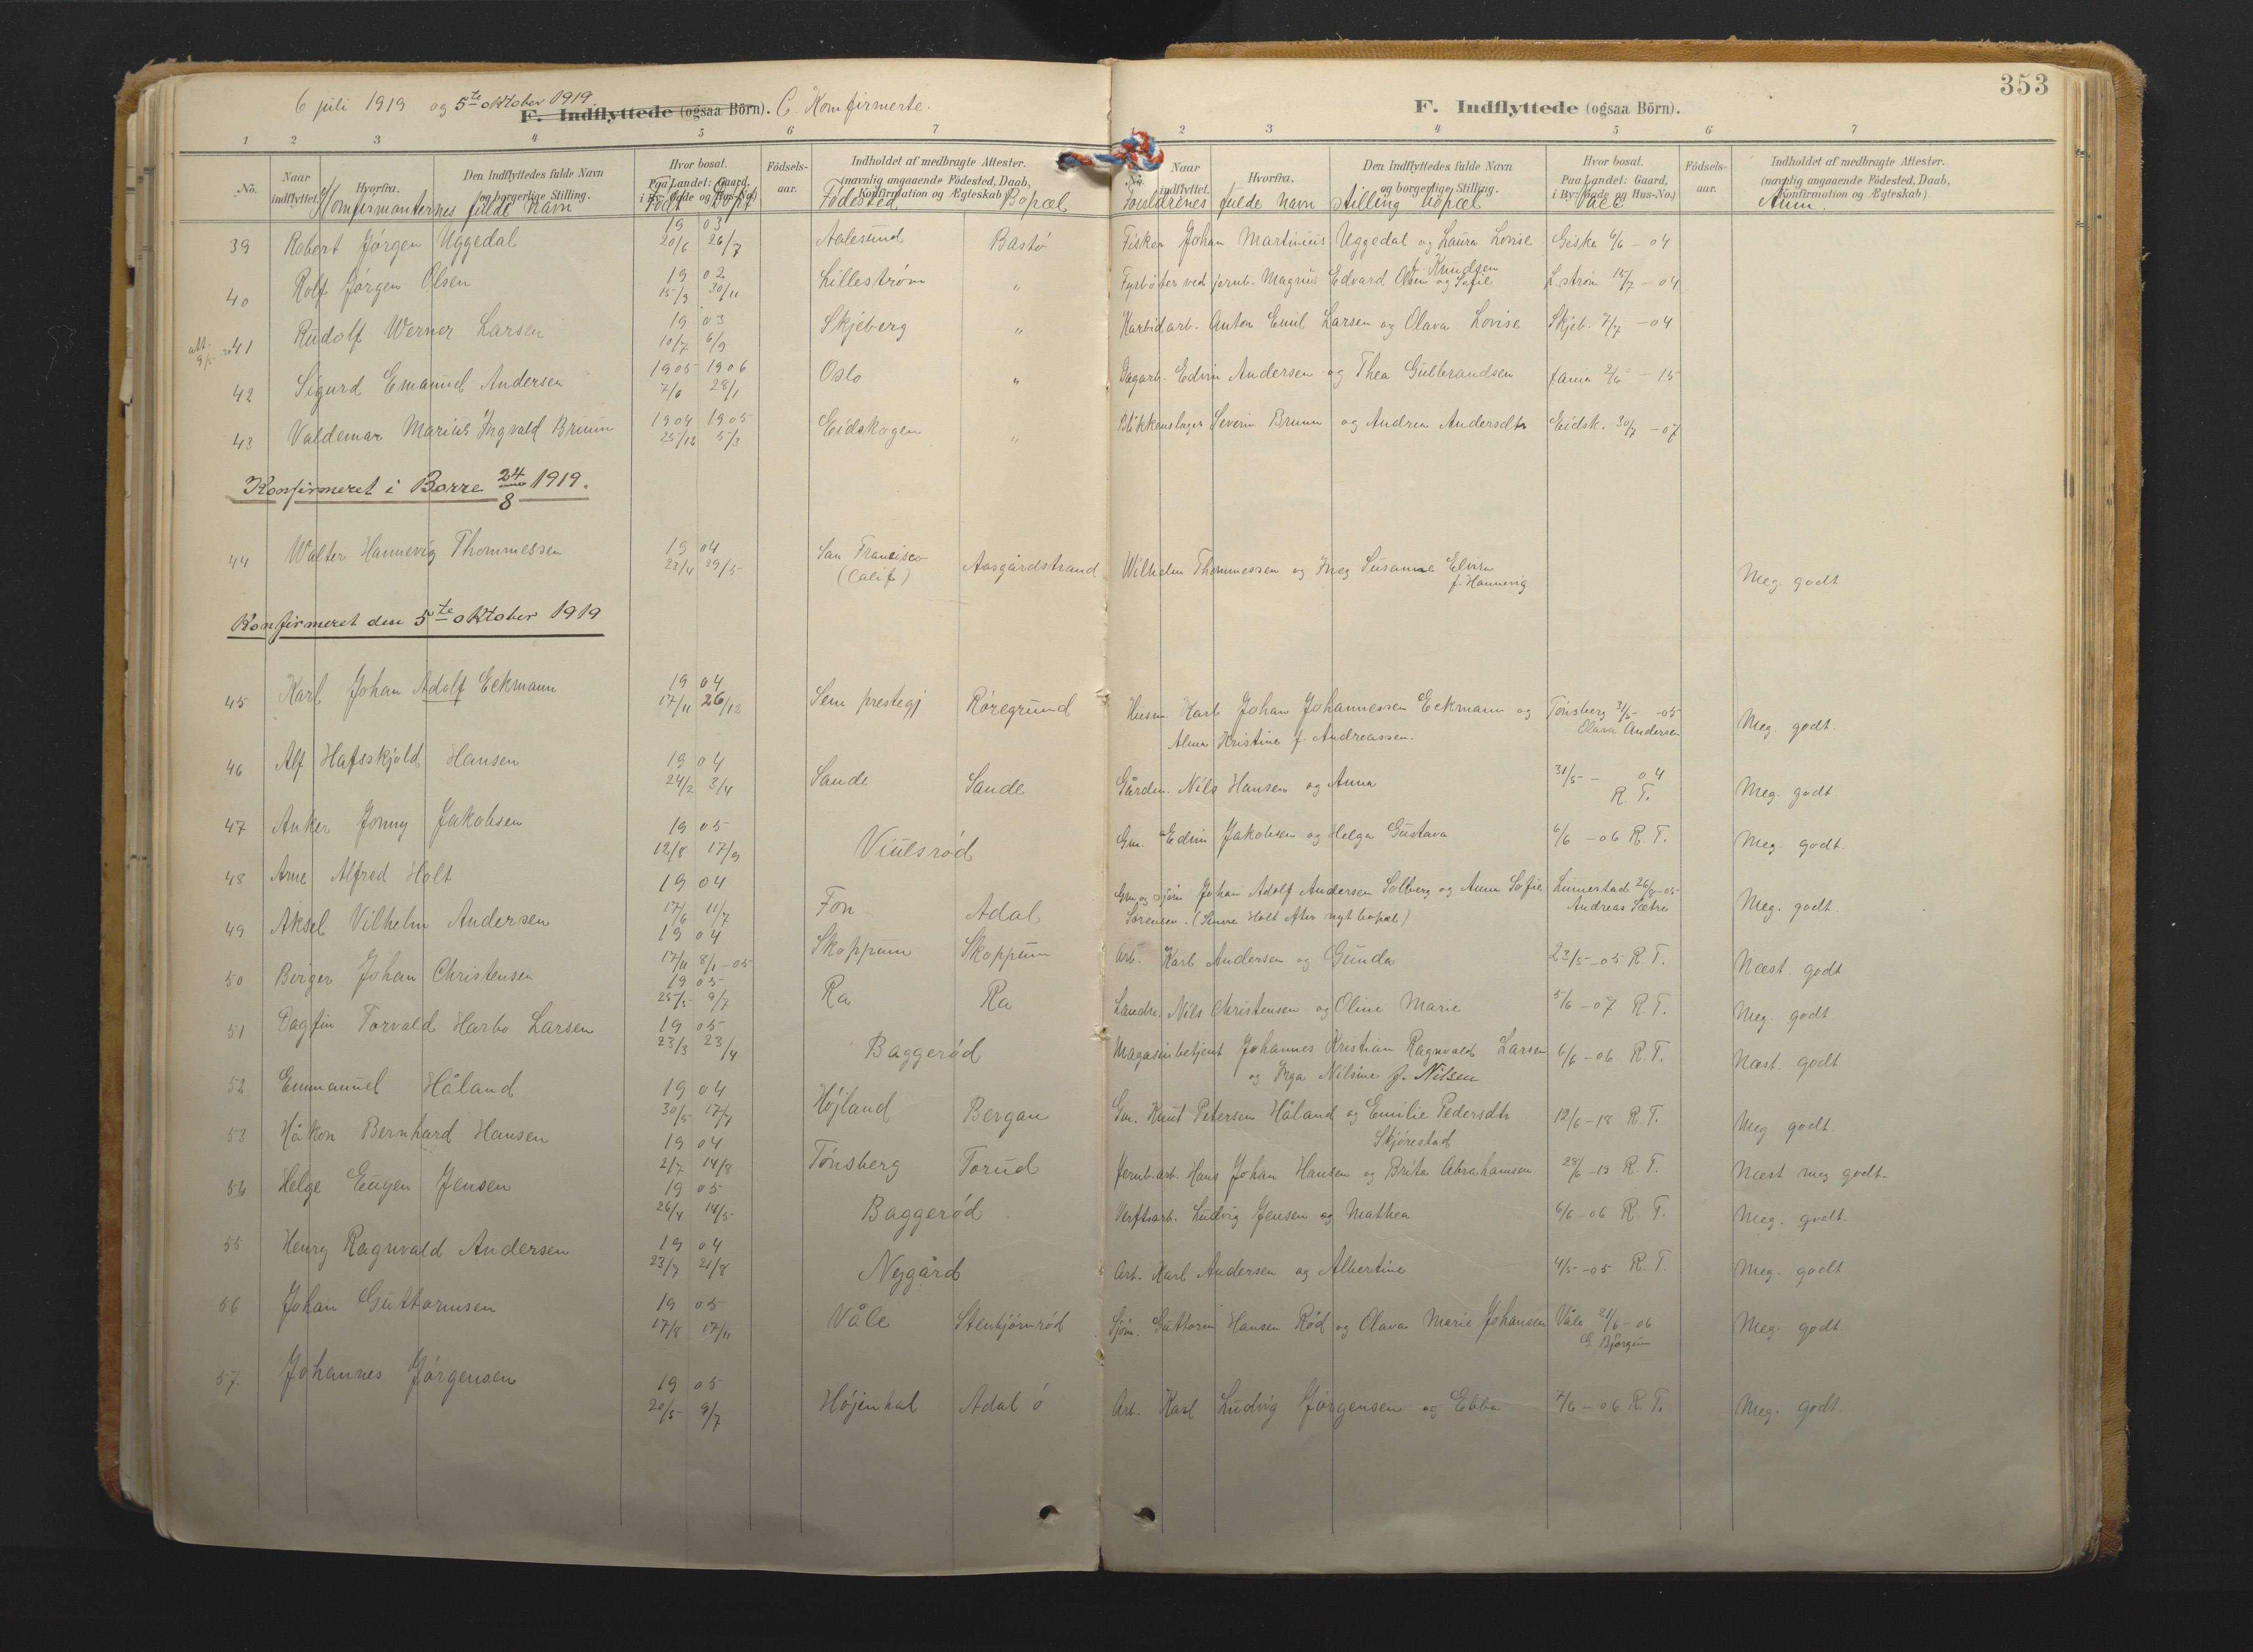 353
6 juli 1919 og 5te oktober 1919.
F. Indflyttede (ogsaa Börn). C. Komfirmerte.
F. Indflyttede (ogsaa Börn).
1 2 3 4 5 6 7
2 3 4 5 6 7
No. Naar indflyttet. Hvorfra. Den Indflyttedes fulde Navn og borgerlige Stilling. Hvor bosat. Paa Landet: Gaard, i By: Gade og Hus-No.) Födsels-aar. Indholdet af medbragte Attester. (navnlig angaaende Födested, Daab, Konfirmation og Ægteskab)
No. Naar indflyttet. Hvorfra. Den Indflyttedes fulde Navn og borgerlige Stilling. Hvor bosat. Paa Landet: Gaard, i By: Gade og Hus-No.) Födsels-aar. Indholdet af medbragte Attester. (navnlig angaaende Födested, Daab, Konfirmation og Ægteskab)
Komfirmanternes fulde navn Født Døpt Fødested Bopæl Forældrenes fulde navn stilling bopæl Vacc Anm.
39 Robert Jørgen Uggedal 19 03 20/6 26/7 Aalesund Bastø Fisker Johan Martinius Uggedal og Laura Lovise Giske 6/6 - 04
40 Rolf Jørgen Olsen 19 02 15/9 30/11 Lillestrøm " Fyrbøter ved jernb. Magnus Edvard Olsen og Sofie f. Knudsen L.strøm 15/7 - 04
41 Rudolf Werner Larsen 19 03 10/7 6/9 Skjeberg " Karbidarb. Anton Emil Larsen og Olava Lovise Skjeb. 7/7 - 04
42 Sigurd Emanuel Andersen 1905 1906 7/6 28/1 Oslo " Edvin Andersen og Thea Gulbrandsen 2/6 - 15
43 Valdemar Marius Ingvald Bruun 1904 1905 25/12 5/3 Eidskogen " Blikkenslager Severin Bruun og Andrea Andersdtr Eidsk. 30/7 - 07
Konfirmeret i Borre 24/8 1919.
44 Walter Hannevig Thommessen 19 04 23/4 29/5 San Francisco (Calif) Aasgårdstrand Wilhelm Thommessen og Inez Susanne Elvira f. Hannevig Meg. godt
Konfirmeret den 5te oktober 1919
45 Karl Johan Adolf Eckmann 19 04 17/11 26/12 Sem prestegj Røregrund Husm. Karl Johan Johannessen Eckmann og Tønsberg 31/5 -05
Alma Kristine f. Andreassen. Olava Andersen Meg. godt.
46 Alf Hafsskjold Hansen 19 04 24/2 3/4 Sande Sande Gårdm. Nils Hansen og Anna 31/5 - 04 R. T. Meg. godt
47 Anker Jonny Jakobsen 19 05 12/8 17/9 Viulsrød Gm. Edvin Jakobsen og Helga Gustava 6/6 - 06 R. T. Meg. godt.
48 Arne Alfred Holt 19 04 17/6 11/7 Fon Adal Gm og sjøm Johan Adolf Andersen Solberg og Anna Sofie Linnestad 26/8-05
Sørensen. (Senere Holt efter nyt bopæl) Andreas Sætre Meg. godt.
49 Aksel Vilhelm Andersen 19 04 17/11 8/1-05 Skoppum Skoppum Arb. Karl Andersen og Gunda 23/5-05 R. T. Næst. godt
50 Birger Johan Christensen 19 05 25/5 9/7 Ra Ra Landh. Nils Christensen og Oline Marie 5/6 - 07 R. T. Meg. godt
51 Dagfin Torvald Harbo Larsen 19 05 23/3 23/4 Baggerød Magasinbetjent Johannes Kristian Ragnvald Larsen
og Inga Nilsine f. Nilsen 6/6 - 06 R. T. Næst. godt
52 Emmanuel Håland 19 04 30/5 17/7 Højland Bergan Gm. Knut Petersen Håland og Emilie Pedersdtr
Skjørestad 12/6-18 R. T. Meg godt.
53 Håkon Bernhard Hansen 19 04 2/7 14/8 Tønsberg Torud Jernb.arb. Hans Johan Hansen og Brita Abrahamsen 28/6-19 R. T. Næst meg godt.
54 Helge Eugen Jensen 19 05 26/4 14/5 Baggerød Verftsarb. Ludvig Jensen og Mathea 6/6-06 R. T. Meg. godt.
55 Henry Ragnvald Andersen 19 04 23/7 21/8 Nygård Arb. Karl Andersen og Albertine 4/5-05 R. T. Meg. godt.
56 Johan Guttormsen 19 05 17/8 17/11 Våle Stenbjørnrød Sjøm. Guttorm Hansen Rød og Olava Marie Johansen Våle 21/6-06
G. Bjørgum Meg. godt.
57 Johannes Jørgensen 19 05 20/5 9/7 Højenhal Adal ø Arb. Karl Ludvig Jørgensen og Ebba 7/6 - 06 R. T. Meg. godt